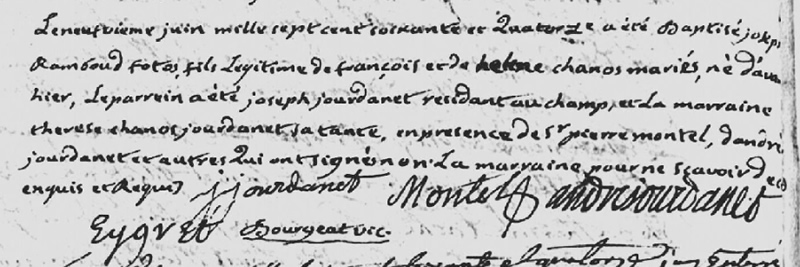 Leneufvieme juin mille sept cent soixante et Quatorze a été Baptisé joseph
Rambaud fotos, fils Legitime de françois et de helene chanos mariés, nè d'avan
hier, Leparrein a été joseph jourdanet residant au champ, et La marraine
therese chanos jourdanet sa tante, en presence de Sr pierre montel, d'andré
jourdanet et autres Qui ont signé non La marraine pour ne sçavoir de ce
enquis et Requis j jourdanet Montel andre jourdanet
Eygret Bourgeat vic.